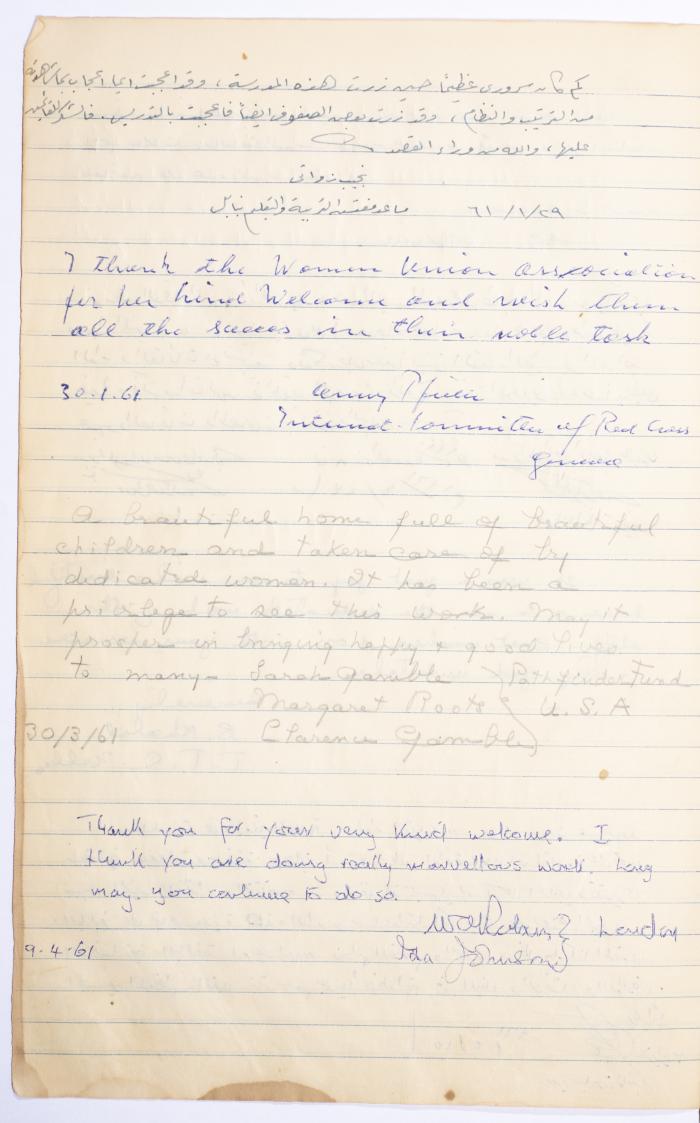 كم كان سروري عظيماً حين زرت هذه المدرسة، وقد اعجبت ايما اعجاب بما شاهدته
من الترتيب والنظام، وقد زرت بعض الصفوف ايضاً فاعجبت بالتدريس. فالشكر للقائمين
عليها، والله من وراء القصد
نجيب زواتي
٦١/١/٢٩ مساعد مفتش التربية والتعليم بنابلس
I thank the Women Union Association
for her kind Welcome and wish them
all the success in their noble task
30.1.61
Internat. Committee of Red Cross
Geneva
A beautiful home full of beautiful
children and taken care of by
dedicated women. It has been a
privilege to see this work. May it
prosper in bringing happy & good lives
to many - Sarah Gamble } Pathfinder Fund
Margaret Roots } U.S.A
30/3/61 Clarence Gamble }
Thank you for your very kind welcome. I
think you are doing really marvellous work. Long
may you continue to do so.
London
9.4.61 Ida Johnson }